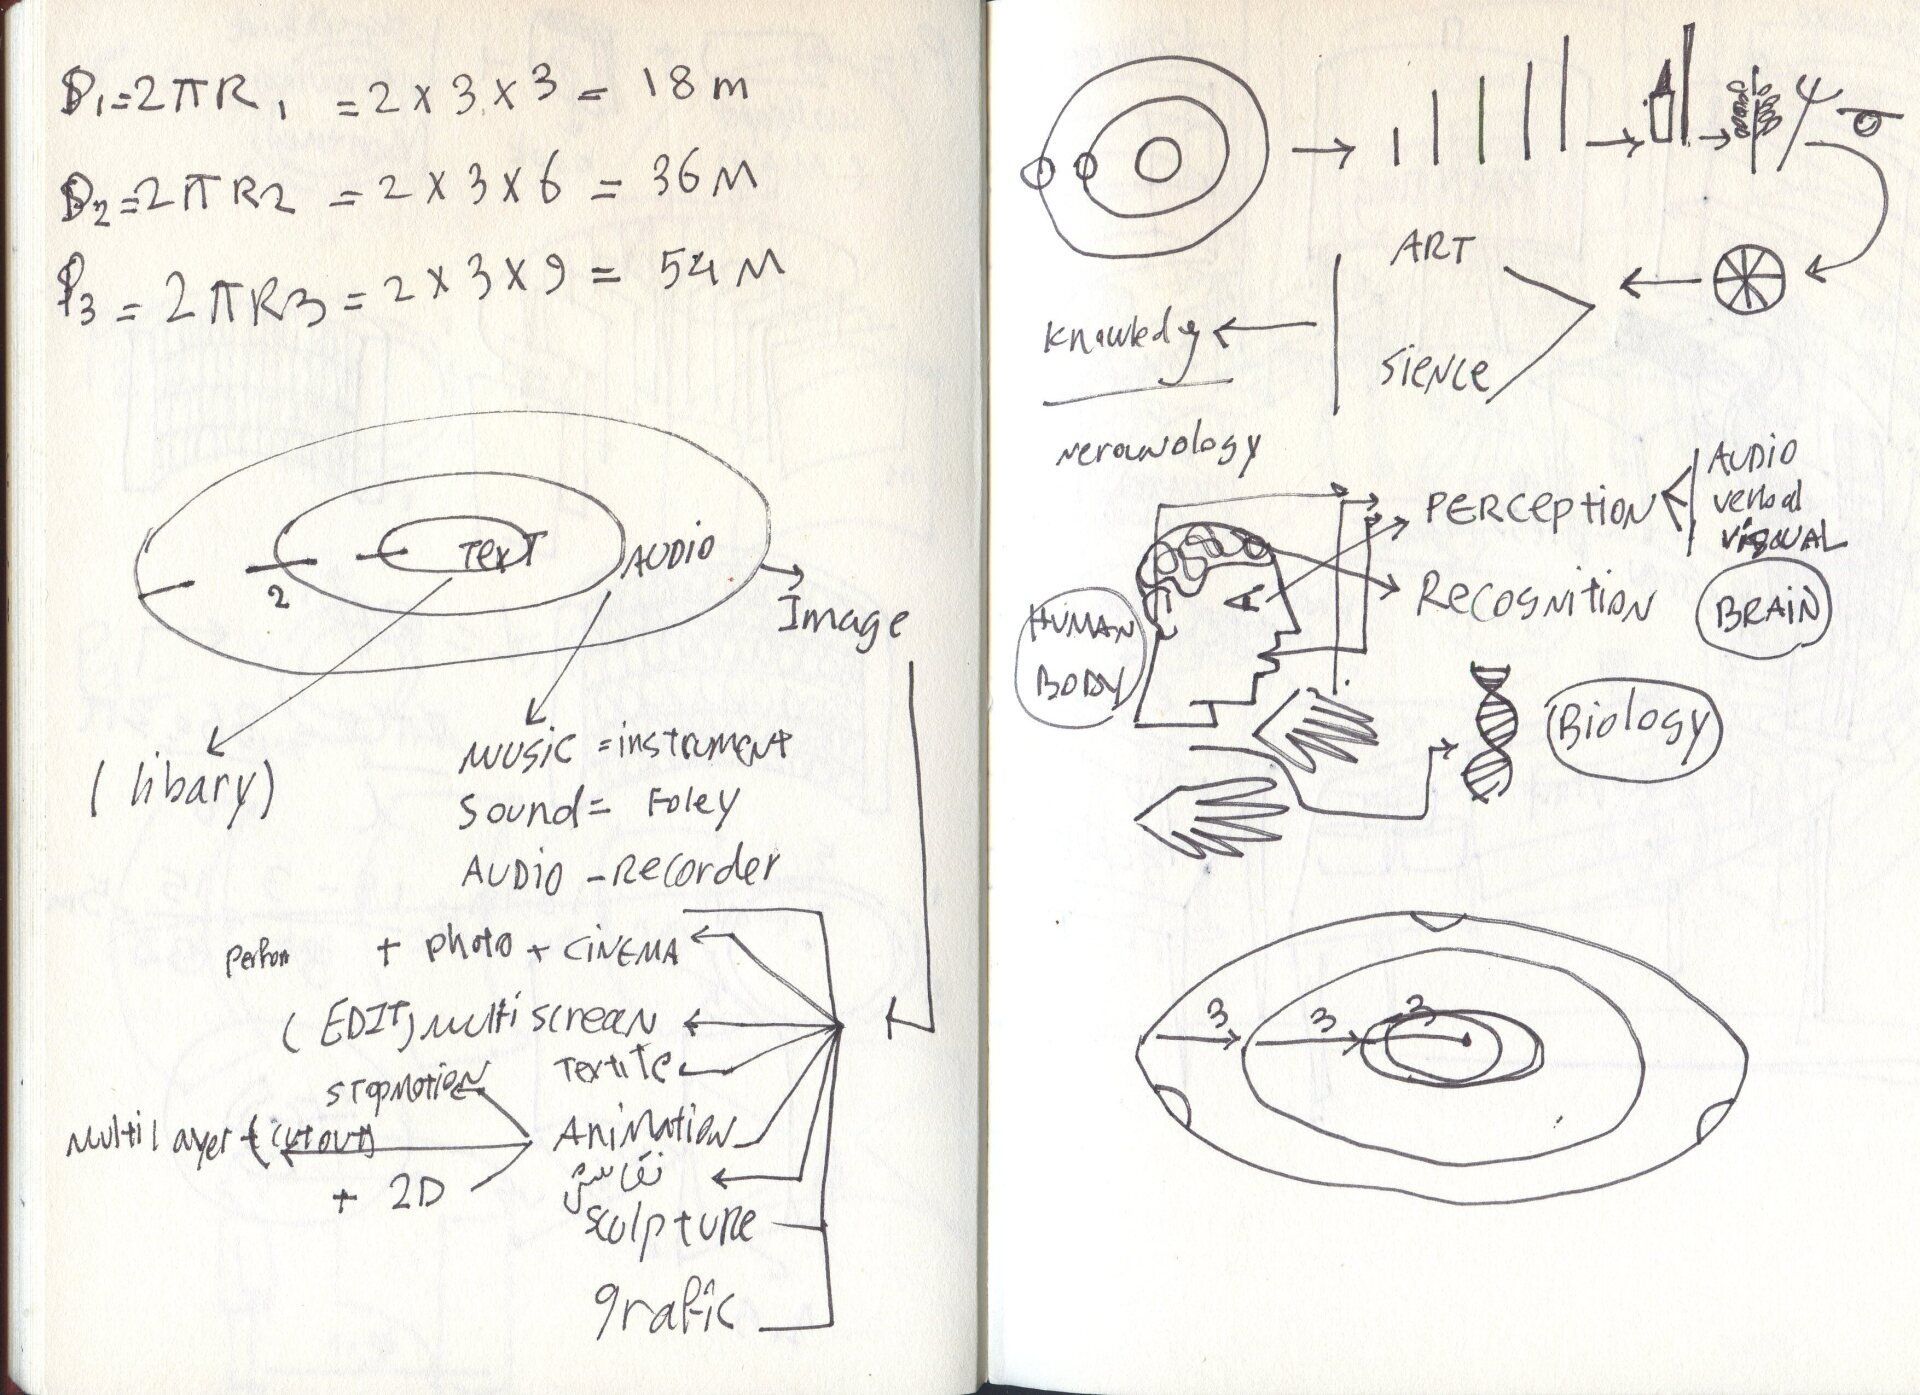 P1=2πR1 = 2 x 3 x 3 = 18 m
P2=2πR2 = 2 x 3 x 6 = 36 M
P3 = 2πR3 = 2 x 3 x 9 = 54 M
TexT
AUDIO
2
Image
( libary)
MUSIC = instrument
Sound = Foley
AUDIO - Recorder
+ photo + CINEMA
(EDIT) multi screan
STOPMOTION
Multi layer + (cutout)
Animation
+ 2D
نقاشی
Sculpture
grafic
ART
Knowledg
SIENCE
nerounology
PERCEPTION
AUDIO
verbal
VISOUAL
RECOGNITION
BRAIN
HUMAN
BODY
Biology
3 3 3